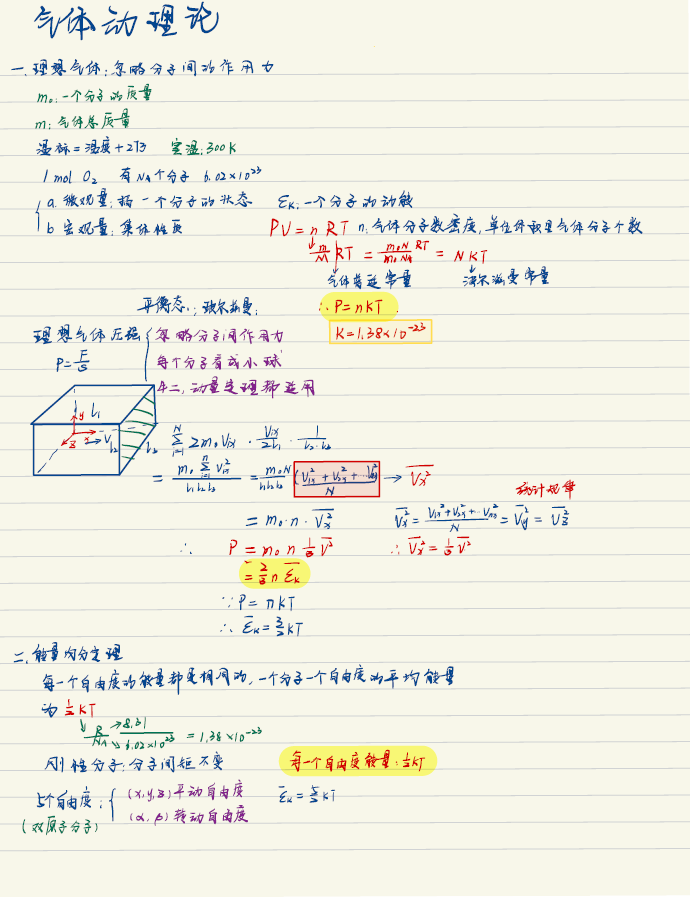 气体动理论
一.理想气体:忽略分子间的作用力
m₀:一个分子的质量
m:气体总质量
温标=温度+273 室温:300K
1 mol O₂ 有 NA个分子 6.02×10²³
a.微观量:指一个分子的状态 εk:一个分子的动能
b 宏观量:集体性质 PV=nRT n:气体分子数密度,单位体积里气体分子个数
m/M RT = m₀N/m₀NA RT = NKT
气体普适常量 玻尔兹曼常量
平衡态: 玻尔兹曼: ∴P=nKT
理想气体压强 忽略分子间作用力 K=1.38×10⁻²³
P=F/S 每个分子看成小球
牛二,动量定理都适用
y l₁
z x V l₂ l₃
∑ᵢ₌₁ᴺ 2m₀Vix · Vix/2l₁ · 1/l₂·l₃
= m₀∑ᵢ₌₁ⁿ Vix²/l₁l₂l₃ = m₀N/l₁l₂l₃ (V₁x²+V₂x²+…VNx²/N) → V̄x²
统计规律
= m₀·n·V̄x² V̄x² = V₁x²+V₂x²+…VNx²/N = V̄y² = V̄z²
∴ P = m₀ n 1/3 V̄² ∴ V̄x² = 1/3 V̄²
= 2/3 n ε̄k
∵ P = nKT
∴ ε̄k = 3/2 KT
二.能量均分定理
每一个自由度的能量都是相同的,一个分子一个自由度的平均能量
为 1/2 KT
R/NA → 8.31/6.02×10²³ = 1.38×10⁻²³
刚性分子:分子间距不变 每一个自由度能量:1/2KT
5个自由度: (x,y,z)平动自由度 ε̄k = 5/2 KT
(双原子分子) (α,β)转动自由度